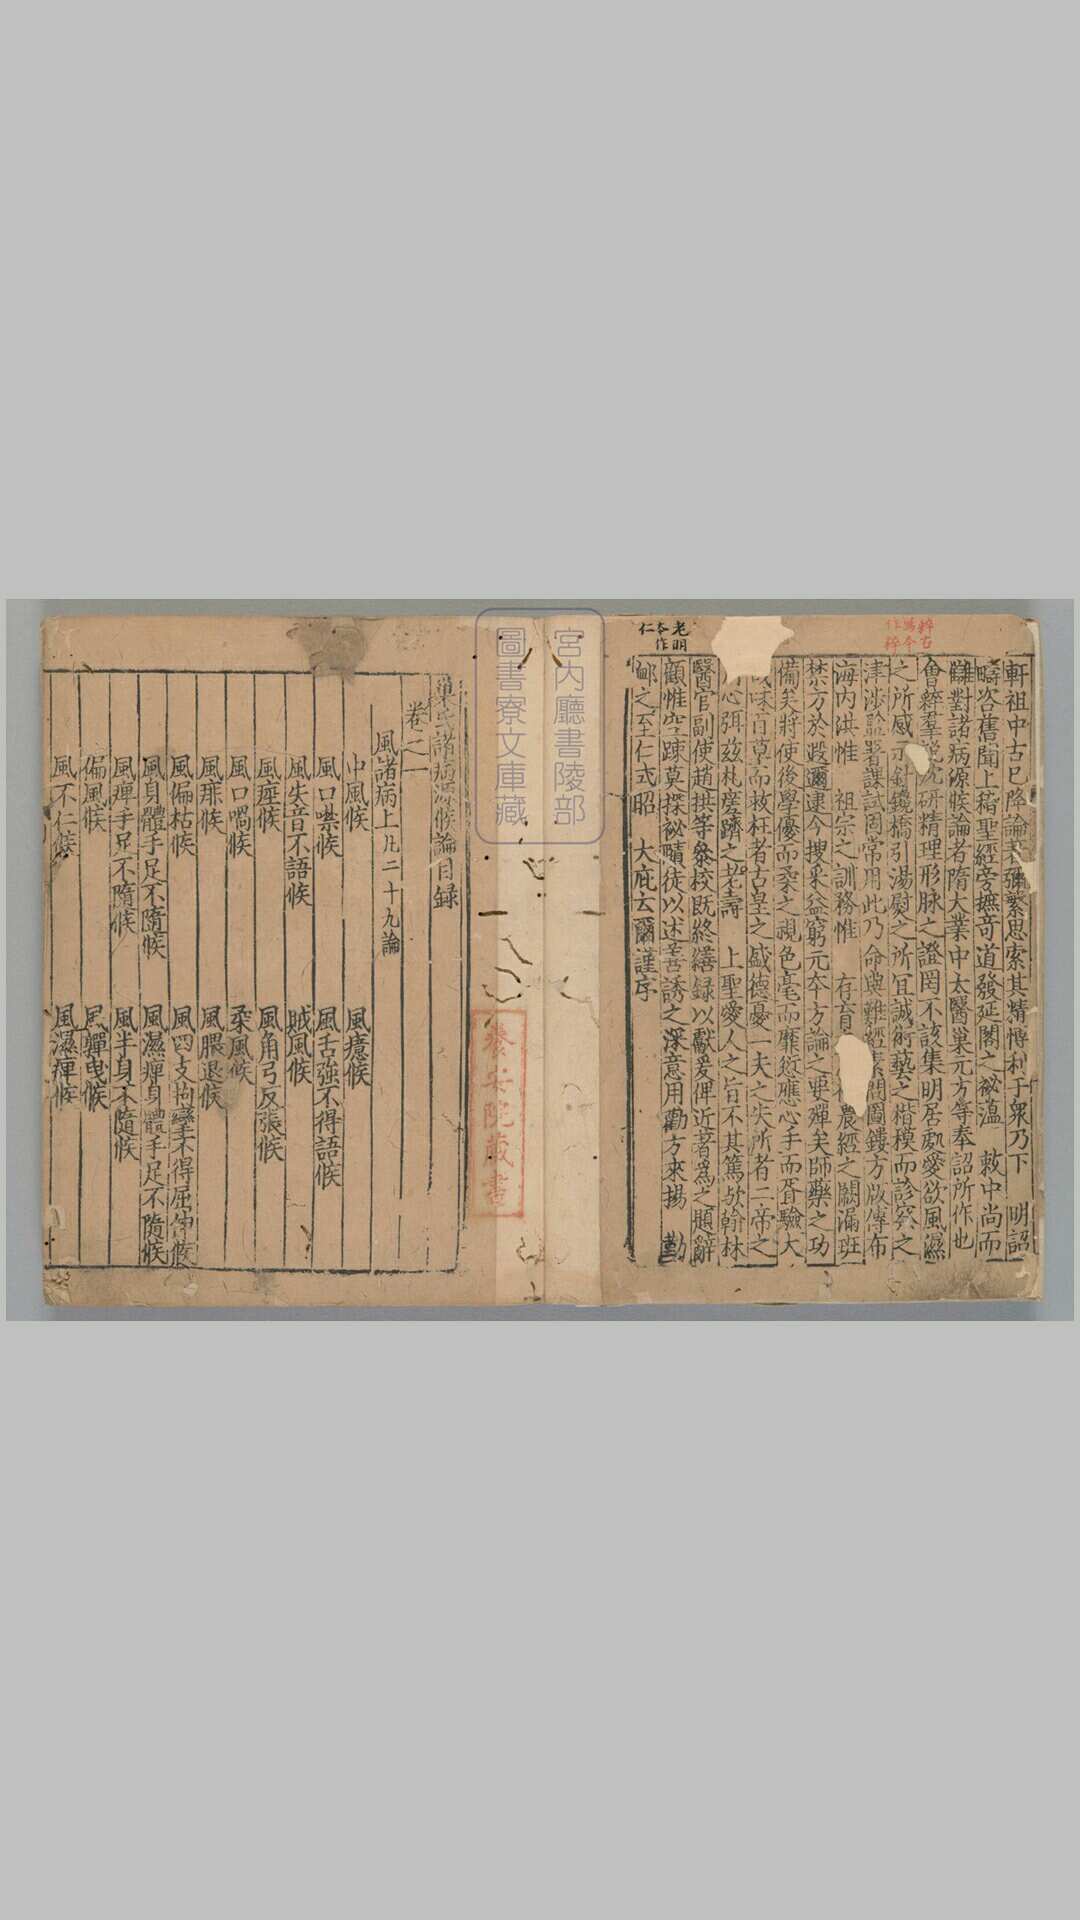 軒祖中古已降論著彌繫思索其精博利于眾乃下　明詔
疇咨舊聞上稽聖經旁摭奇道發延閣之祕蘊　敕中尚而
讎對諸病源候論者隋大業中太醫巢元方等奉詔所作也
會稡羣說沈研精理形脉之證罔不該集明居處愛欲風濕
之所感示針鑱橋引湯熨之所宜誠術藝之楷模而診察之
津涉監署課試固常用此乃　命與難經素問圖鏤方版傳布
海内洪惟　祖宗之訓務惟　存育　農經之闕漏班
禁方於遐邇逮今搜采益窮元本方論之要殫矣師藥之功
備矣將使後學優而柔之視色毫而靡愆應心手而胥驗大
味百草而救枉者古皇之盛德憂一夫之失所者二帝之
心弭茲札瘥躋之老壽　上聖愛人之旨不其篤歟翰林
醫官副使趙拱等參校既終繕錄以獻爰俾近著爲之題辭
顧惟空疎莫探祕賾徒以述善誘之深意用勸方來揚　勤
䘏之至仁式昭　大庇云爾謹序
粹古
爲本
作稡
老明
本作
仁
宮内廳書陵部
圖書寮文庫藏
養安院藏書
巢氏諸病源候論目録
卷之一
風諸病上凡二十九論
中風候　風癔候
風口噤候　風舌強不得語候
風失音不語候　賊風候
風痙候　風角弓反張候
風口喎候　柔風候
風痱候　風腲退候
風偏枯候　風四支拘攣不得屈伸候
風身體手足不隨候　風濕痺身體手足不隨候
風痺手足不隨候　風半身不隨候
偏風候　風軃曳候
風不仁候　風濕痺候